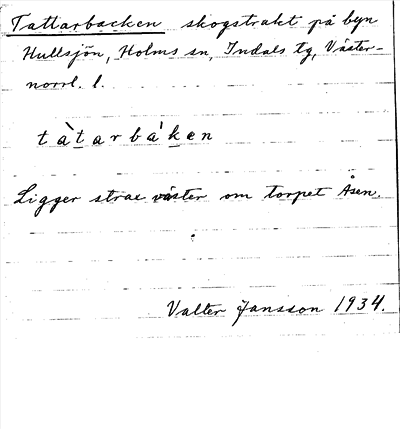 Tattarbacken skogstrakt på byn
Hullsjön, Holms sn, Indals tg, Väster-
norrl. l.
tàtarbàken
Ligger strax väster om torpet Åsen.
Valter Jansson 1934.